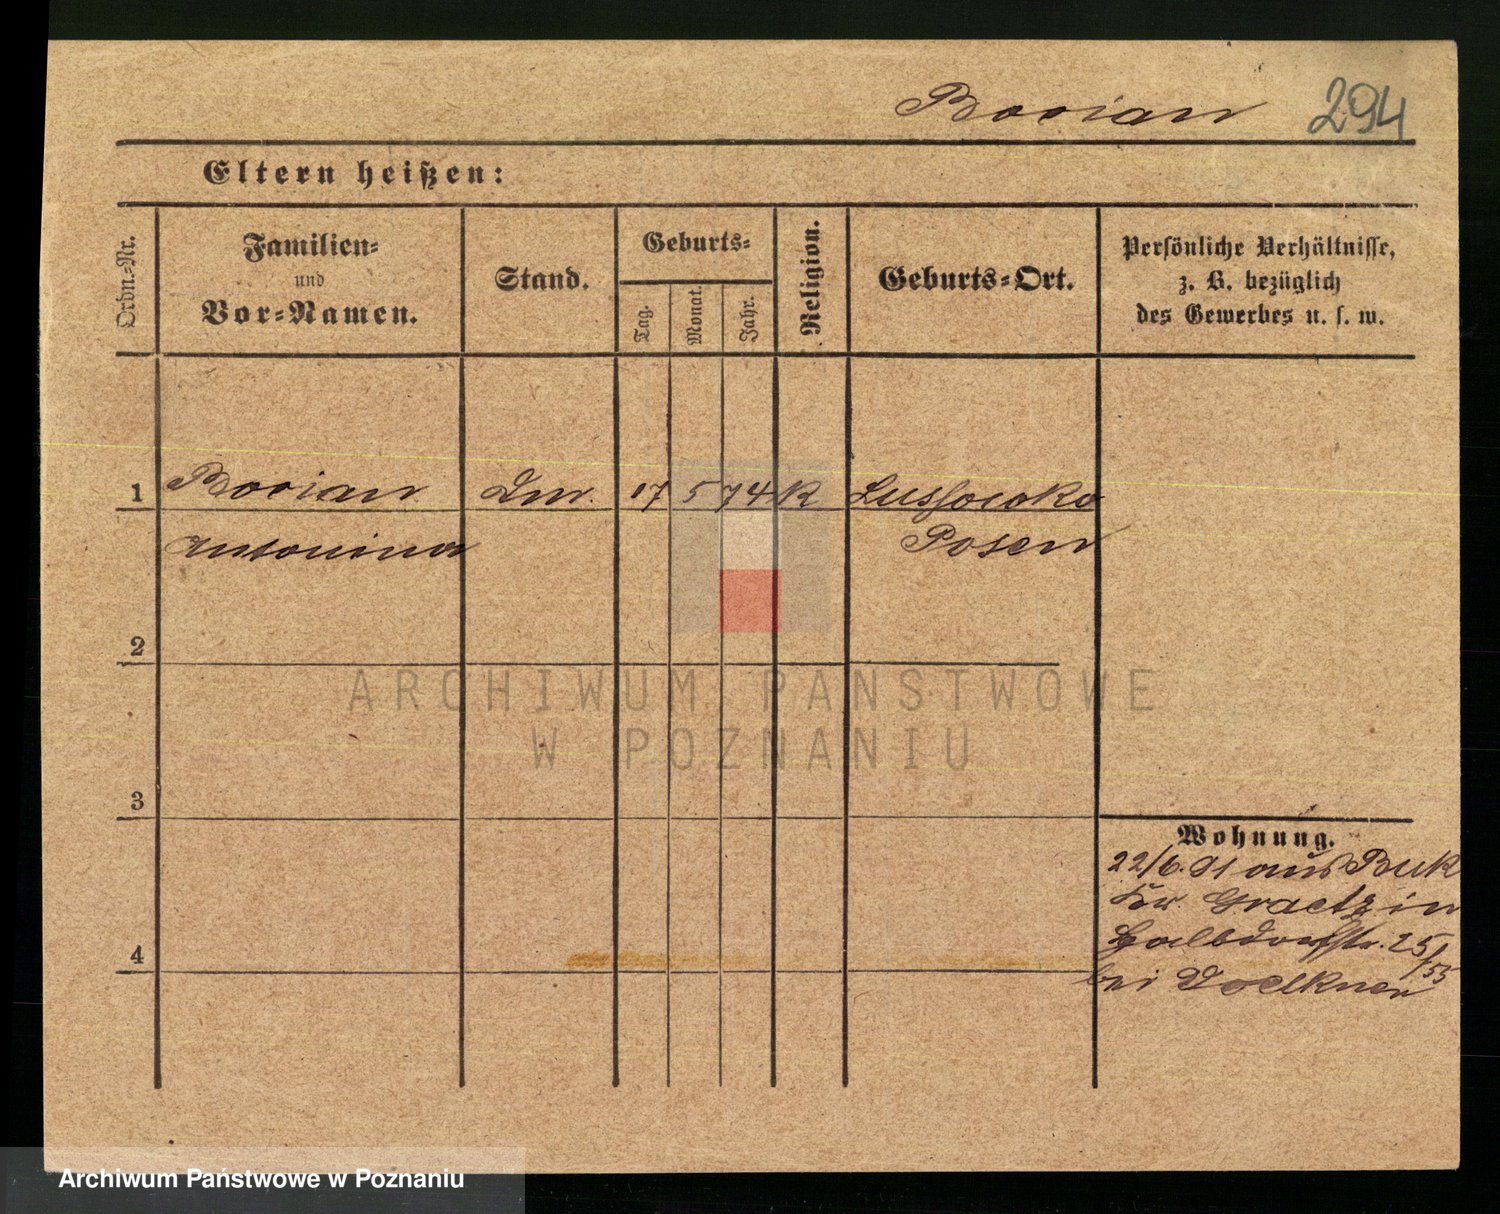 Bovian 294
Eltern heißen:
Ordn.-Nr.
Familien-
und
Vor-Namen.
Stand.
Geburts-
Tag.
Monat.
Jahr.
Religion.
Geburts-Ort.
Persönliche Verhältnisse,
z. B. bezüglich
des Gewerbes u. s. w.
1 Bovian Dm. 17 5 74 K Lussowko
Antonina Posen
2
ARCHIWUM PAŃSTWOWE
W POZNANIU
3
Wohnung.
22/6. 91 aus Buk
Kr. Graetz in
Halbdorfstr. 25/
55
4
bei Voelkner
Archiwum Państwowe w Poznaniu